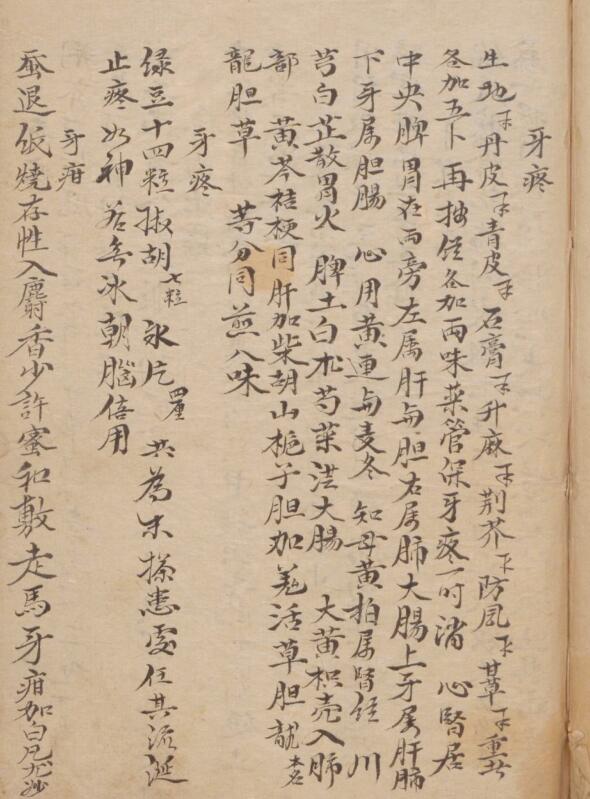 牙疼
生地 丹皮 青皮 石膏 升麻 荆芥 防風 甘草 重者
各加五卜 再按經各加兩味藥管保牙疼一时消 心腎居
中央脾胃在両旁左属肝與胆右属肺大腸上牙属肝肺
下牙属胆腸 心用黄連與麦冬 知母黄柏属腎經 川
芎白芷散胃火 脾土白朮芍薬 大腸 大黄枳壳入肺
部 黄芩桔梗同肝加柴胡山栀子胆加羌活草胆龍
龍胆草 等分同煎八味
牙疼
绿豆十四粒椒胡七粒 氷片四厘 共為末搽患處任其流涎
止疼如神 若無冰朝腦倍用
牙疳
蚕退紙燒存性入麝香少許蜜和敷走馬牙疳加白凡